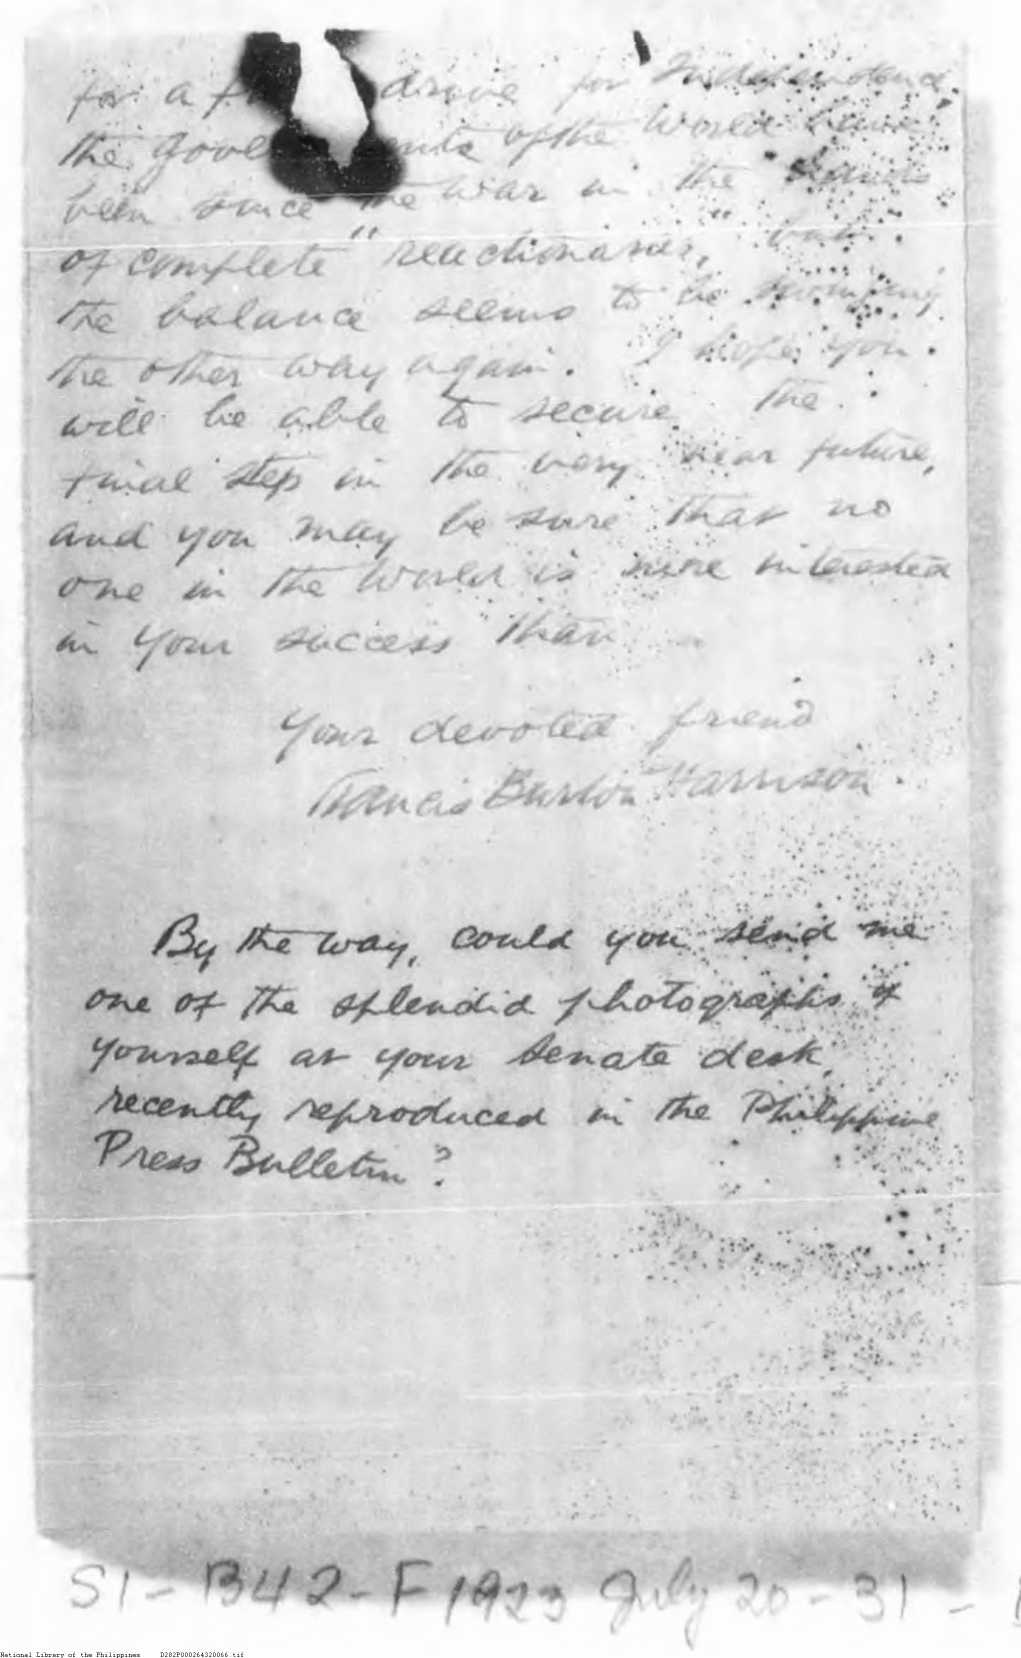 for a drive for Independence,
the governments of the World have
been since the war in the hands
of complete "reactionaries," but
the balance seems to be swinging
the other way again. I hope you
will be able to secure the
final step in the very near future,
and you may be sure that no
one in the World is more interested
in your success than
Your devoted friend
Francis Burton Harrison.
By the way, could you send me
one of the splendid photographs of
yourself at your Senate desk,
recently reproduced in the Philippine
Press Bulletin?
S1-B42-F1923 July 20-31-
National Library of the Philippines D282P000264320066.tif